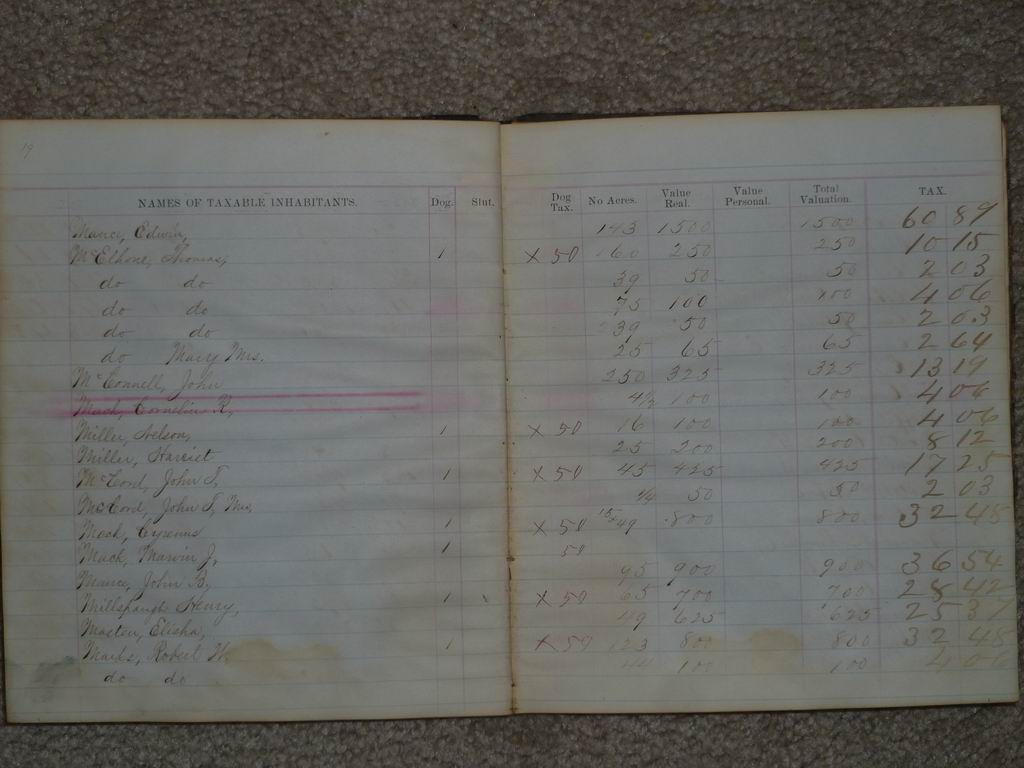 19
NAMES OF TAXABLE INHABITANTS. Dog. Slut. Dog Tax. No Acres. Value Real. Value Personal. Total Valuation. TAX.
Mance, Edwin, 143 1500 1500 60 89
McElhone, Thomas, 1 X 50 160 250 250 10 15
do do 39 50 50 2 03
do do 75 100 100 4 06
do do 239 50 50 2 03
do Mary Mrs. 25 65 65 2 64
McConnell, John 250 325 325 13 19
Mack, Cornelius R, 4/2 100 100 4 06
Miller, Nelson, 1 X 50 16 100 100 4 06
Miller, Harriet 25 200 200 8 12
McCord, John T, 1 X 50 45 425 425 17 25
McCord, John T, Mrs, 1/4 50 50 2 03
Mack, Cyrenus 1 X 50 49 800 800 32 48
Mack, Marvin J, 1 50
Mance, John B, 95 900 900 36 54
Millspaugh Henry, 1 X 50 65 700 700 28 42
Masten, Elisha, 49 625 625 25 37
Marks, Robert H. 1 X 50 123 800 800 32 48
do do 44 100 100 4 06